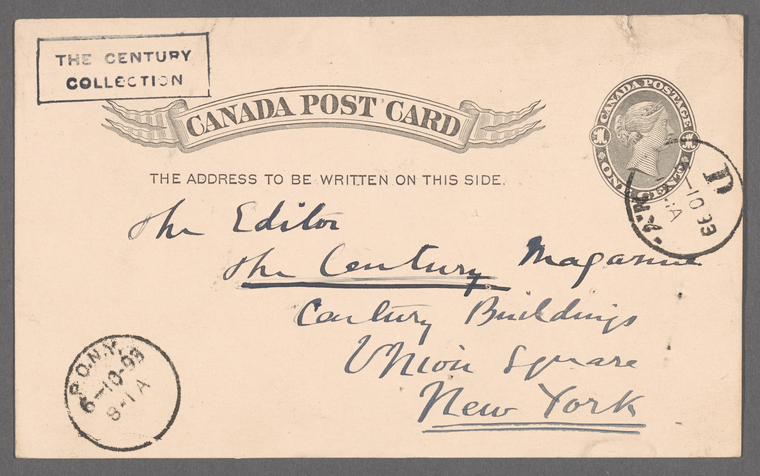 THE CENTURY
COLLECTION
CANADA POST CARD
CANADA POSTAGE
1
1
ONE CENT
THE ADDRESS TO BE WRITTEN ON THIS SIDE.
D
10 93
The Editor
The Century Magazine
Century Buildings
Union Square
New York
P.O.N.Y.
6-10-93
8-1A